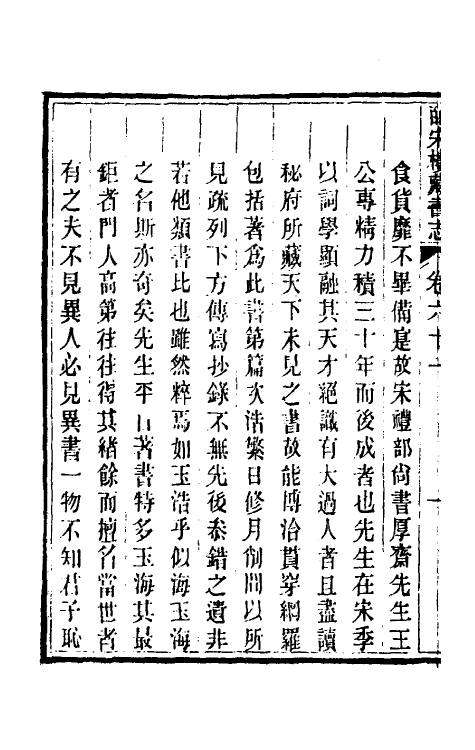 皕宋樓藏書志 卷六十一
食貨靡不畢備寔故宋禮部尚書厚齋先生王
公專精力積三十年而後成者也先生在宋季
以詞學顯融其天才絕識有大過人者且盡讀
秘府所藏天下未見之書故能博洽貫穿網羅
包括著爲此書第篇次浩繁日修月削間以所
見疏列下方傳寫抄錄不無先後叅錯之遺非
若他類書比也雖然粹焉如玉浩乎似海玉海
之名斯亦奇矣先生平日著書特多玉海其最
鉅者門人高第往往得其緒餘而擅名當世者
有之夫不見異人必見異書一物不知君子恥